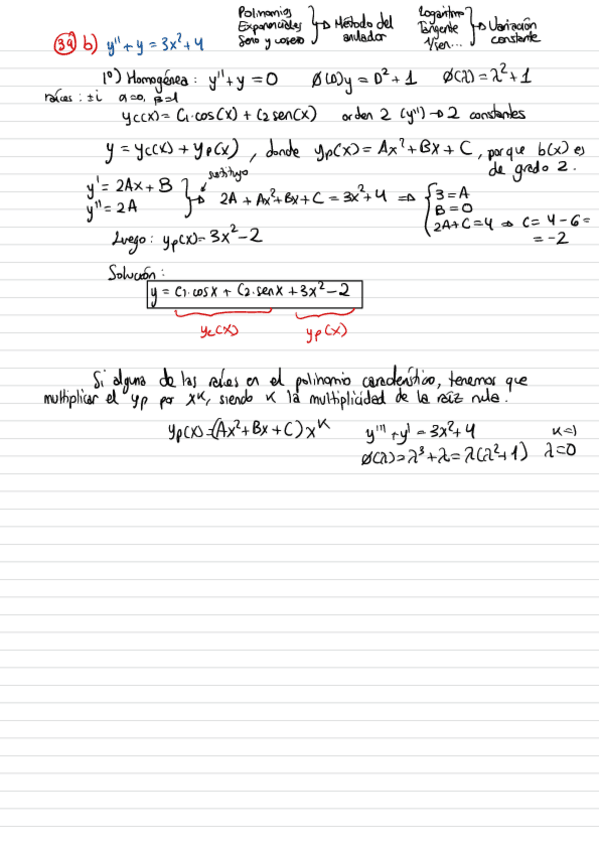 Polinomios
Exponenciales
Seno y coseno
Método del
anulador
Logaritmo
Tangente
1/sen...
Variación
constante
39 b) y'' + y = 3x² + 4
1º) Homogénea: y'' + y = 0 ∅(D)y = D² + 1 ∅(λ) = λ² + 1
raíces: ±i a=0, β=1
yc(x) = C1·cos(x) + C2 sen(x) orden 2 (y'') → 2 constantes
y = yc(x) + yp(x), donde yp(x) = Ax² + Bx + C, porque b(x) es
de grado 2.
sustituyo
y' = 2Ax + B
y'' = 2A
2A + Ax² + Bx + C = 3x² + 4 ⇒
3 = A
B = 0
2A + C = 4 ⇒ C = 4 - 6 =
= -2
Luego: yp(x) = 3x² - 2
Solución:
y = C1·cosx + C2·senx + 3x² - 2
yc(x) yp(x)
Si alguna de las raíces en el polinomio característico, tenemos que
multiplicar el yp por xᴷ, siendo K la multiplicidad de la raíz nula.
yp(x) = (Ax² + Bx + C) xᴷ y''' + y' = 3x² + 4 K=1
∅(λ) = λ³ + λ = λ(λ² + 1) λ=0